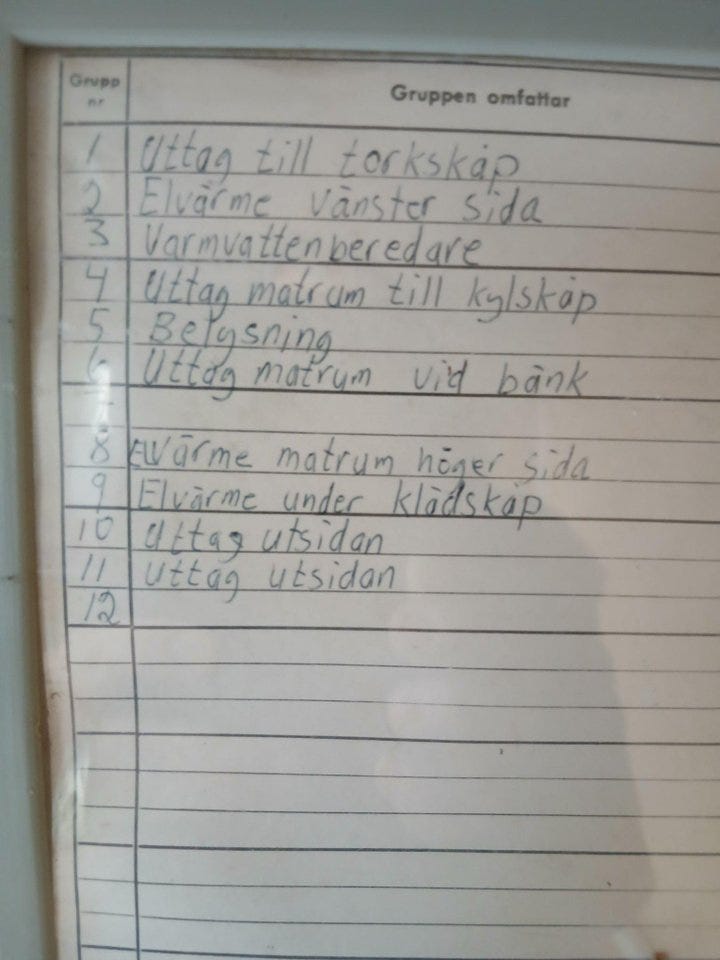 Grupp nr Gruppen omfattar
1 Uttag till torkskåp
2 Elvärme vänster sida
3 Varmvattenberedare
4 Uttag matrum till kylskåp
5 Belysning
6 Uttag matrum vid bänk
7
8 Elvärme matrum höger sida
9 Elvärme under klädskåp
10 Uttag utsidan
11 Uttag utsidan
12